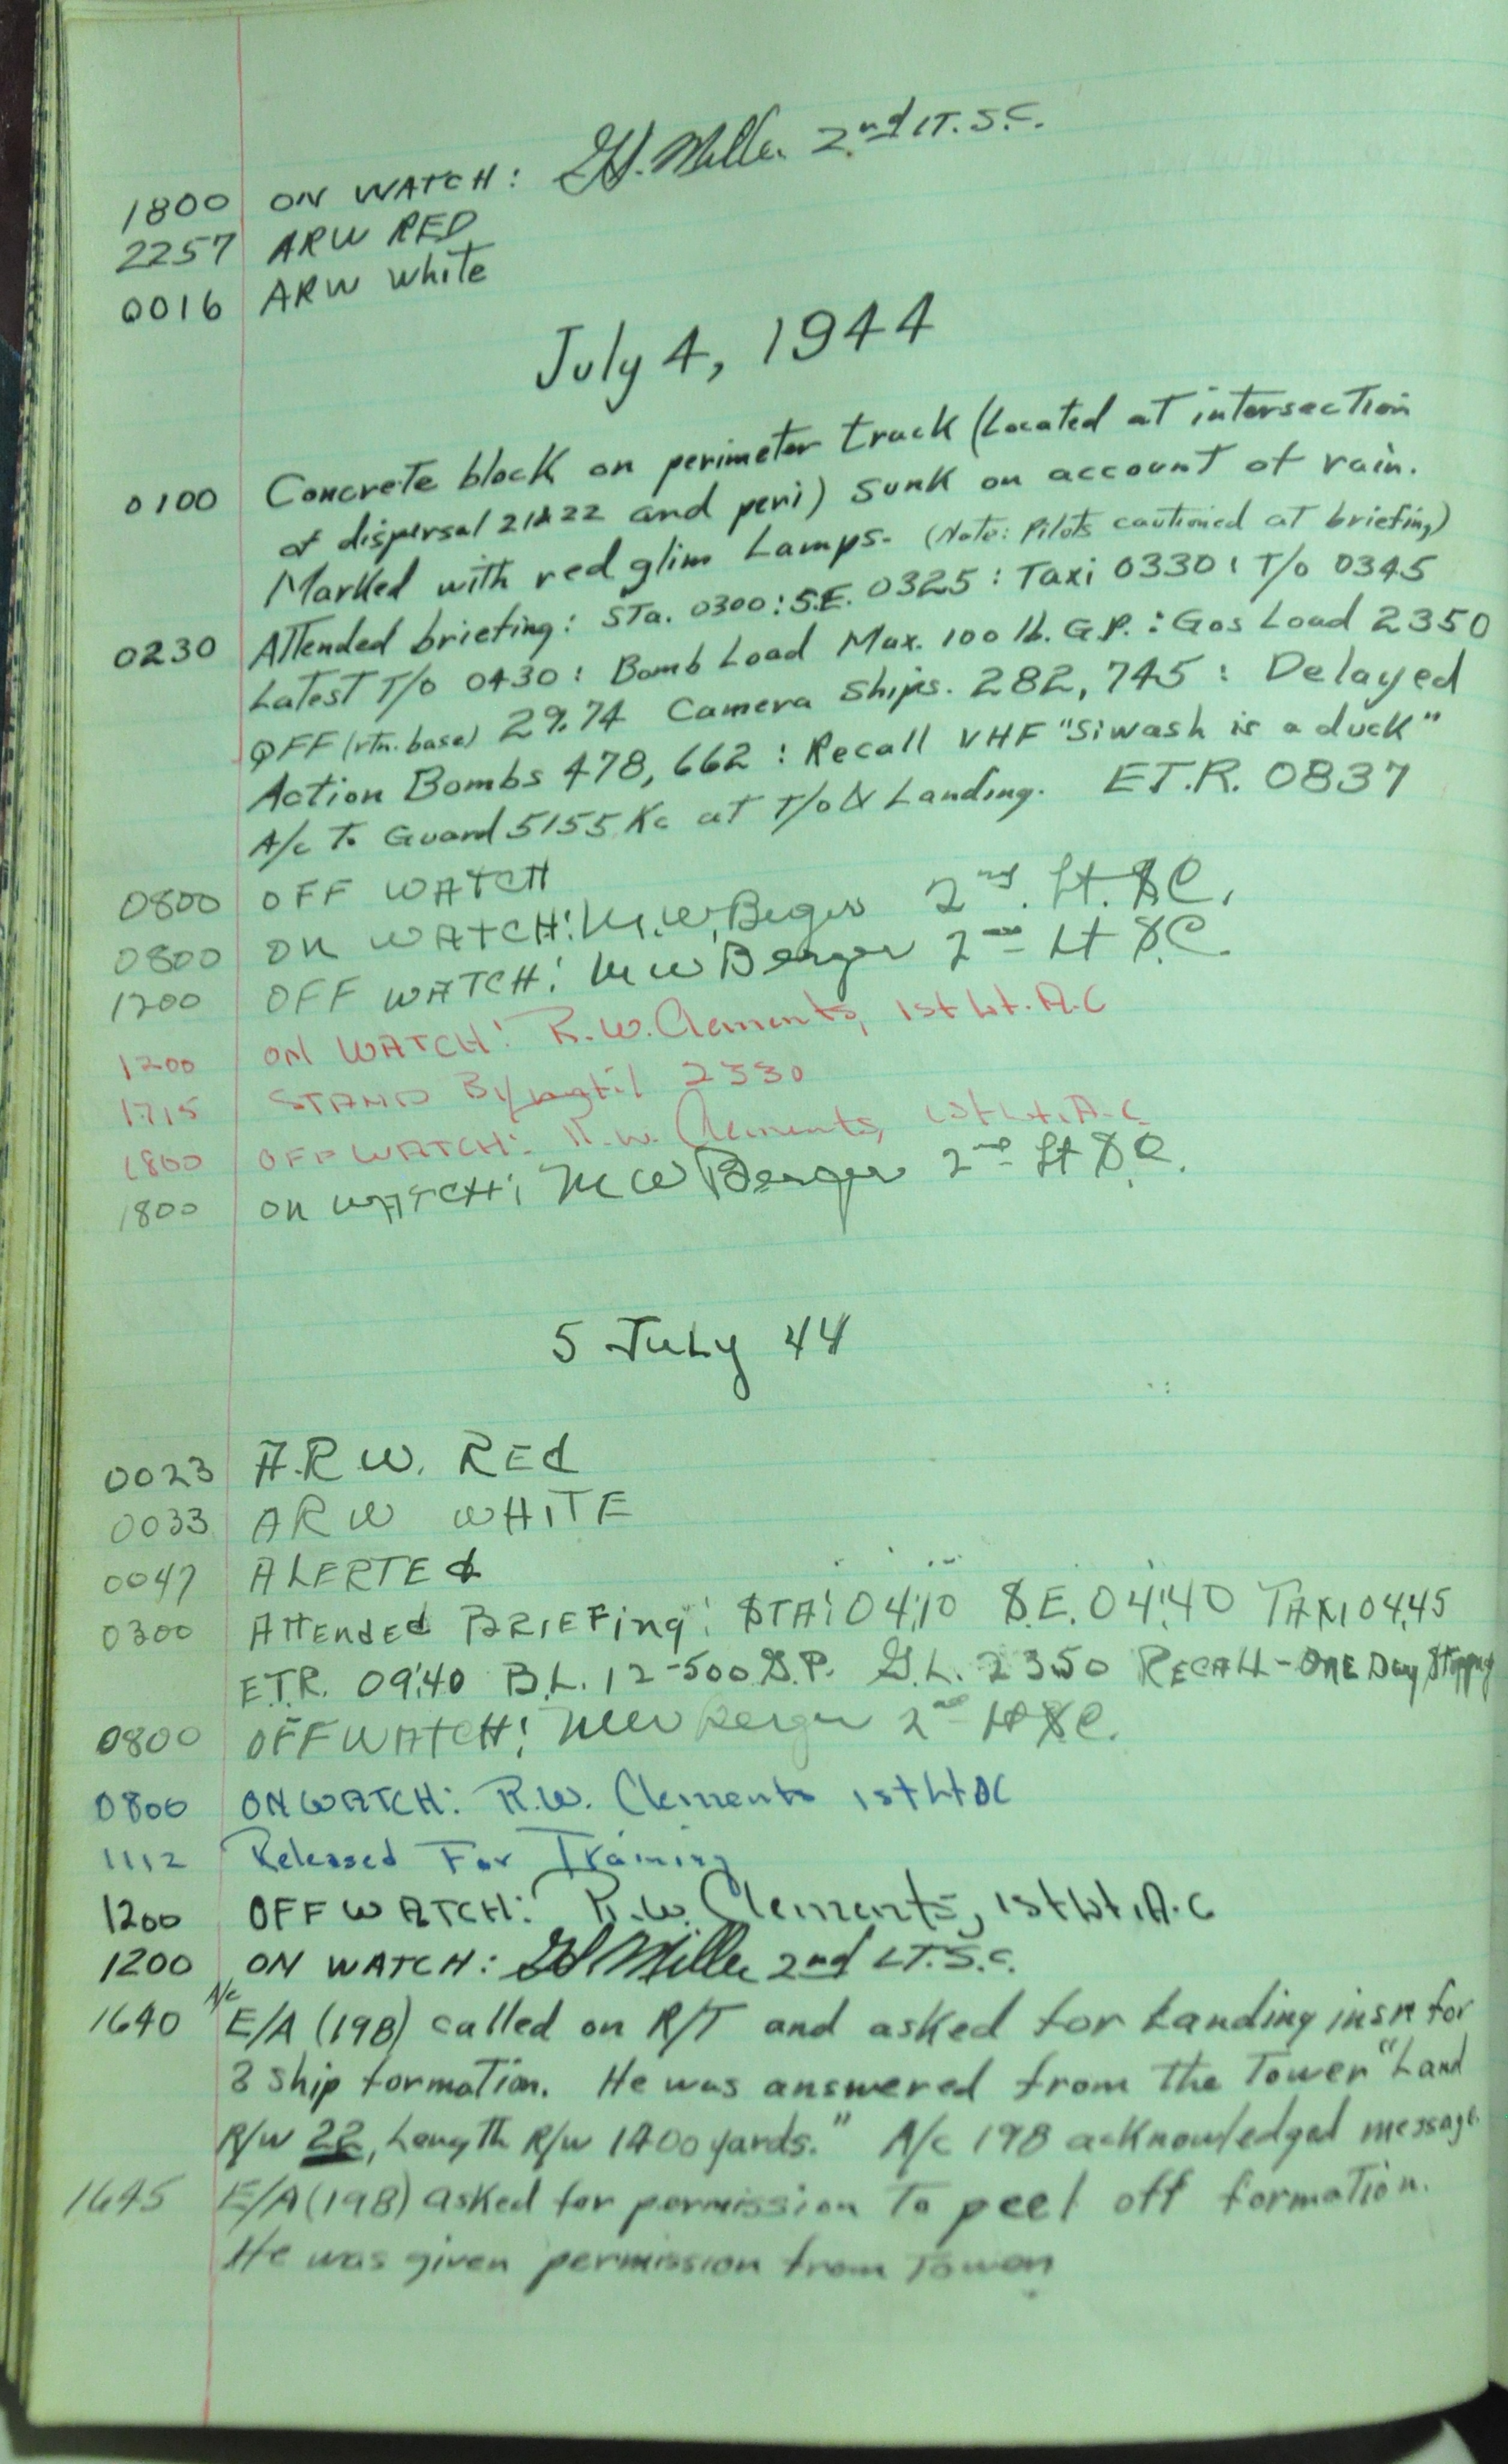 1800 ON WATCH: G.H. Miller 2nd LT. S.C.
2257 ARW RED
0016 ARW White
July 4, 1944
0100 Concrete block on perimeter track (Located at intersection
of dispersal 21&22 and peri) sunk on account of rain.
Marked with red glim Lamps. (Note: Pilots cautioned at briefing)
0230 Attended briefing: STa. 0300: S.E. 0325: Taxi 0330: T/o 0345
Latest T/o 0430: Bomb Load Max. 100 lb. G.P.: Gas Load 2350
QFF (rtn. base) 29.74 Camera Ships. 282, 745: Delayed
Action Bombs 478, 662: Recall VHF "Siwash is a duck"
A/c To Guard 5155 Kc at T/o & Landing. E.T.R. 0837
0800 OFF WATCH
0800 ON WATCH: M.W. Berger 2nd. Lt. SC.
1200 OFF WATCH: MW Berger 2nd Lt S.C.
1200 ON WATCH: R.W. Clements, 1st Lt. A.C
1715 STAND By until 2330
1800 OFF WATCH: R.W. Clements, 1st Lt. A.C
1800 ON WATCH: MW Berger 2nd Lt S.C.
5 July 44
0023 A.R.W. REd
0033 ARW WHITE
0047 ALERTEd
0300 AttENdEd BRIEFing: STA: 04:10 S.E. 04:40 TAXI 04:45
E.T.R. 09:40 B.L. 12-500 G.P. G.L. 2350 RECALL - ONE Day Stoppag
0800 OFF WATCH: MW Berger 2nd Lt SC.
0800 ON WATCH: R.W. Clements 1st Lt AC
1112 Released For Training
1200 OFF WATCH: R.W. Clements, 1st Lt, A.C
1200 ON WATCH: GH Miller 2nd LT. S.C.
A/c
1640 E/A (198) called on R/T and asked for Landing insn for
3 ship formation. He was answered from the Tower "Land
R/W 22, Length R/W 1400 yards." A/c 198 acknowledged message
1645 E/A (198) asked for permission To peel off formation.
He was given permission from Tower